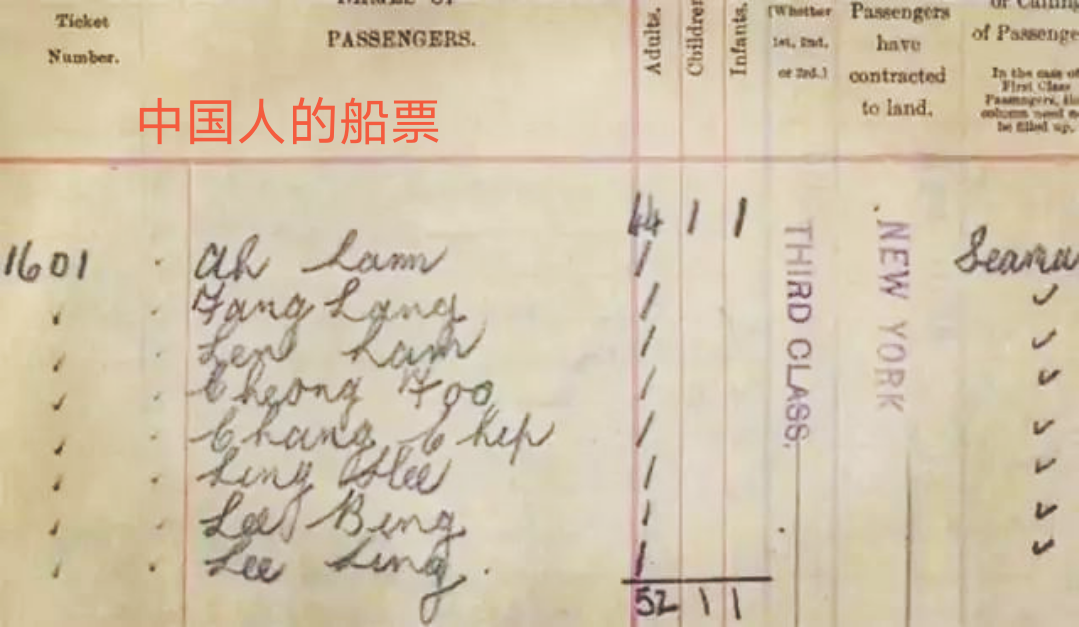 Ticket
Number.
NAMES OF
PASSENGERS.
Adults.
Children
Infants.
(Whether
1st, 2nd,
or 3rd.)
Passengers
have
contracted
to land.
or Calling
of Passenge
In the case of
First Class
Passengers, this
column need n
be filled up.
中国人的船票
44 1 1
1601 Ah Lam 1 Seama
Fang Lang 1
Len Lam 1
Cheong Foo 1
Chang Chip 1
Ling Hee 1
Lee Bing 1
Lee Ling. 1
THIRD CLASS.
NEW YORK
52 1 1